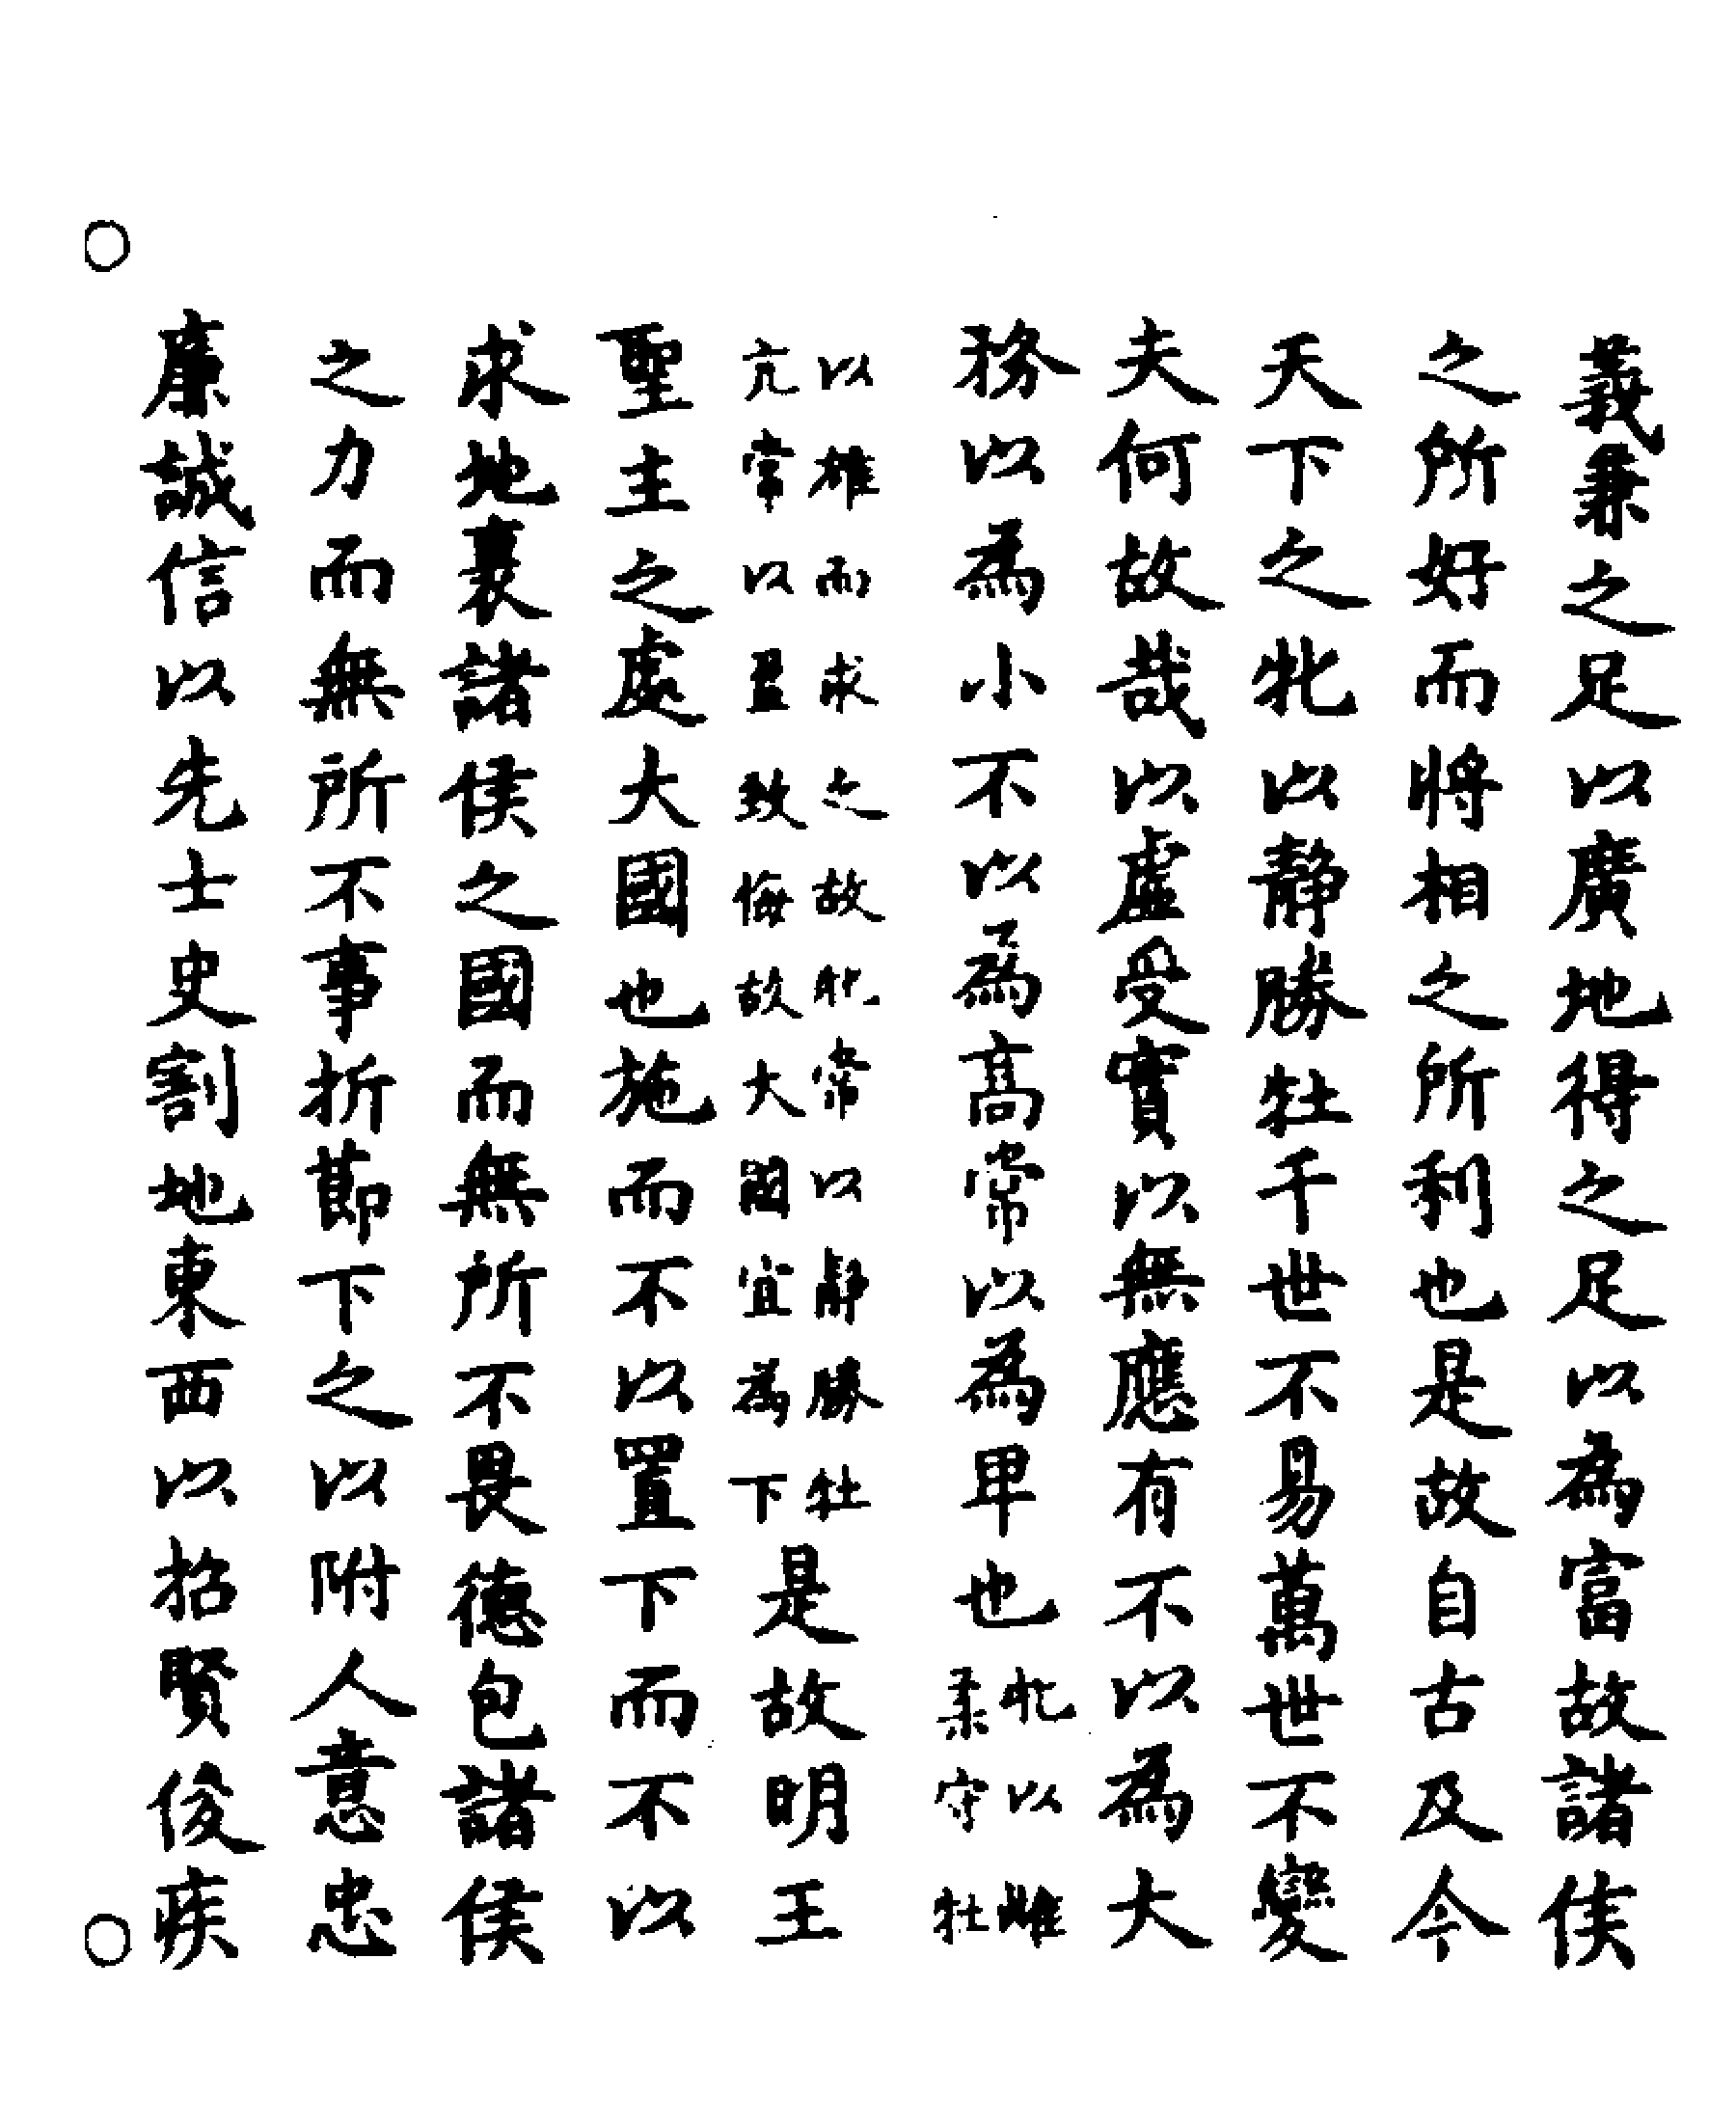 義兼之足以廣地得之足以為富故諸侯
之所好而將相之所利也是故自古及今
天下之牝以靜勝牡千世不易萬世不變
夫何故哉以虛受實以無應有不以為大
務以為小不以為高常以為卑也牝以雌
柔守牡
以雄而求之故牝常以靜勝牡
亢常以盈致悔故大國宜為下是故明王
聖主之處大國也施而不以置下而不以
求地裹諸侯之國而無所不畏德包諸侯
之力而無所不事折節下之以附人意忠
廉誠信以先士史割地東西以招賢俊疾